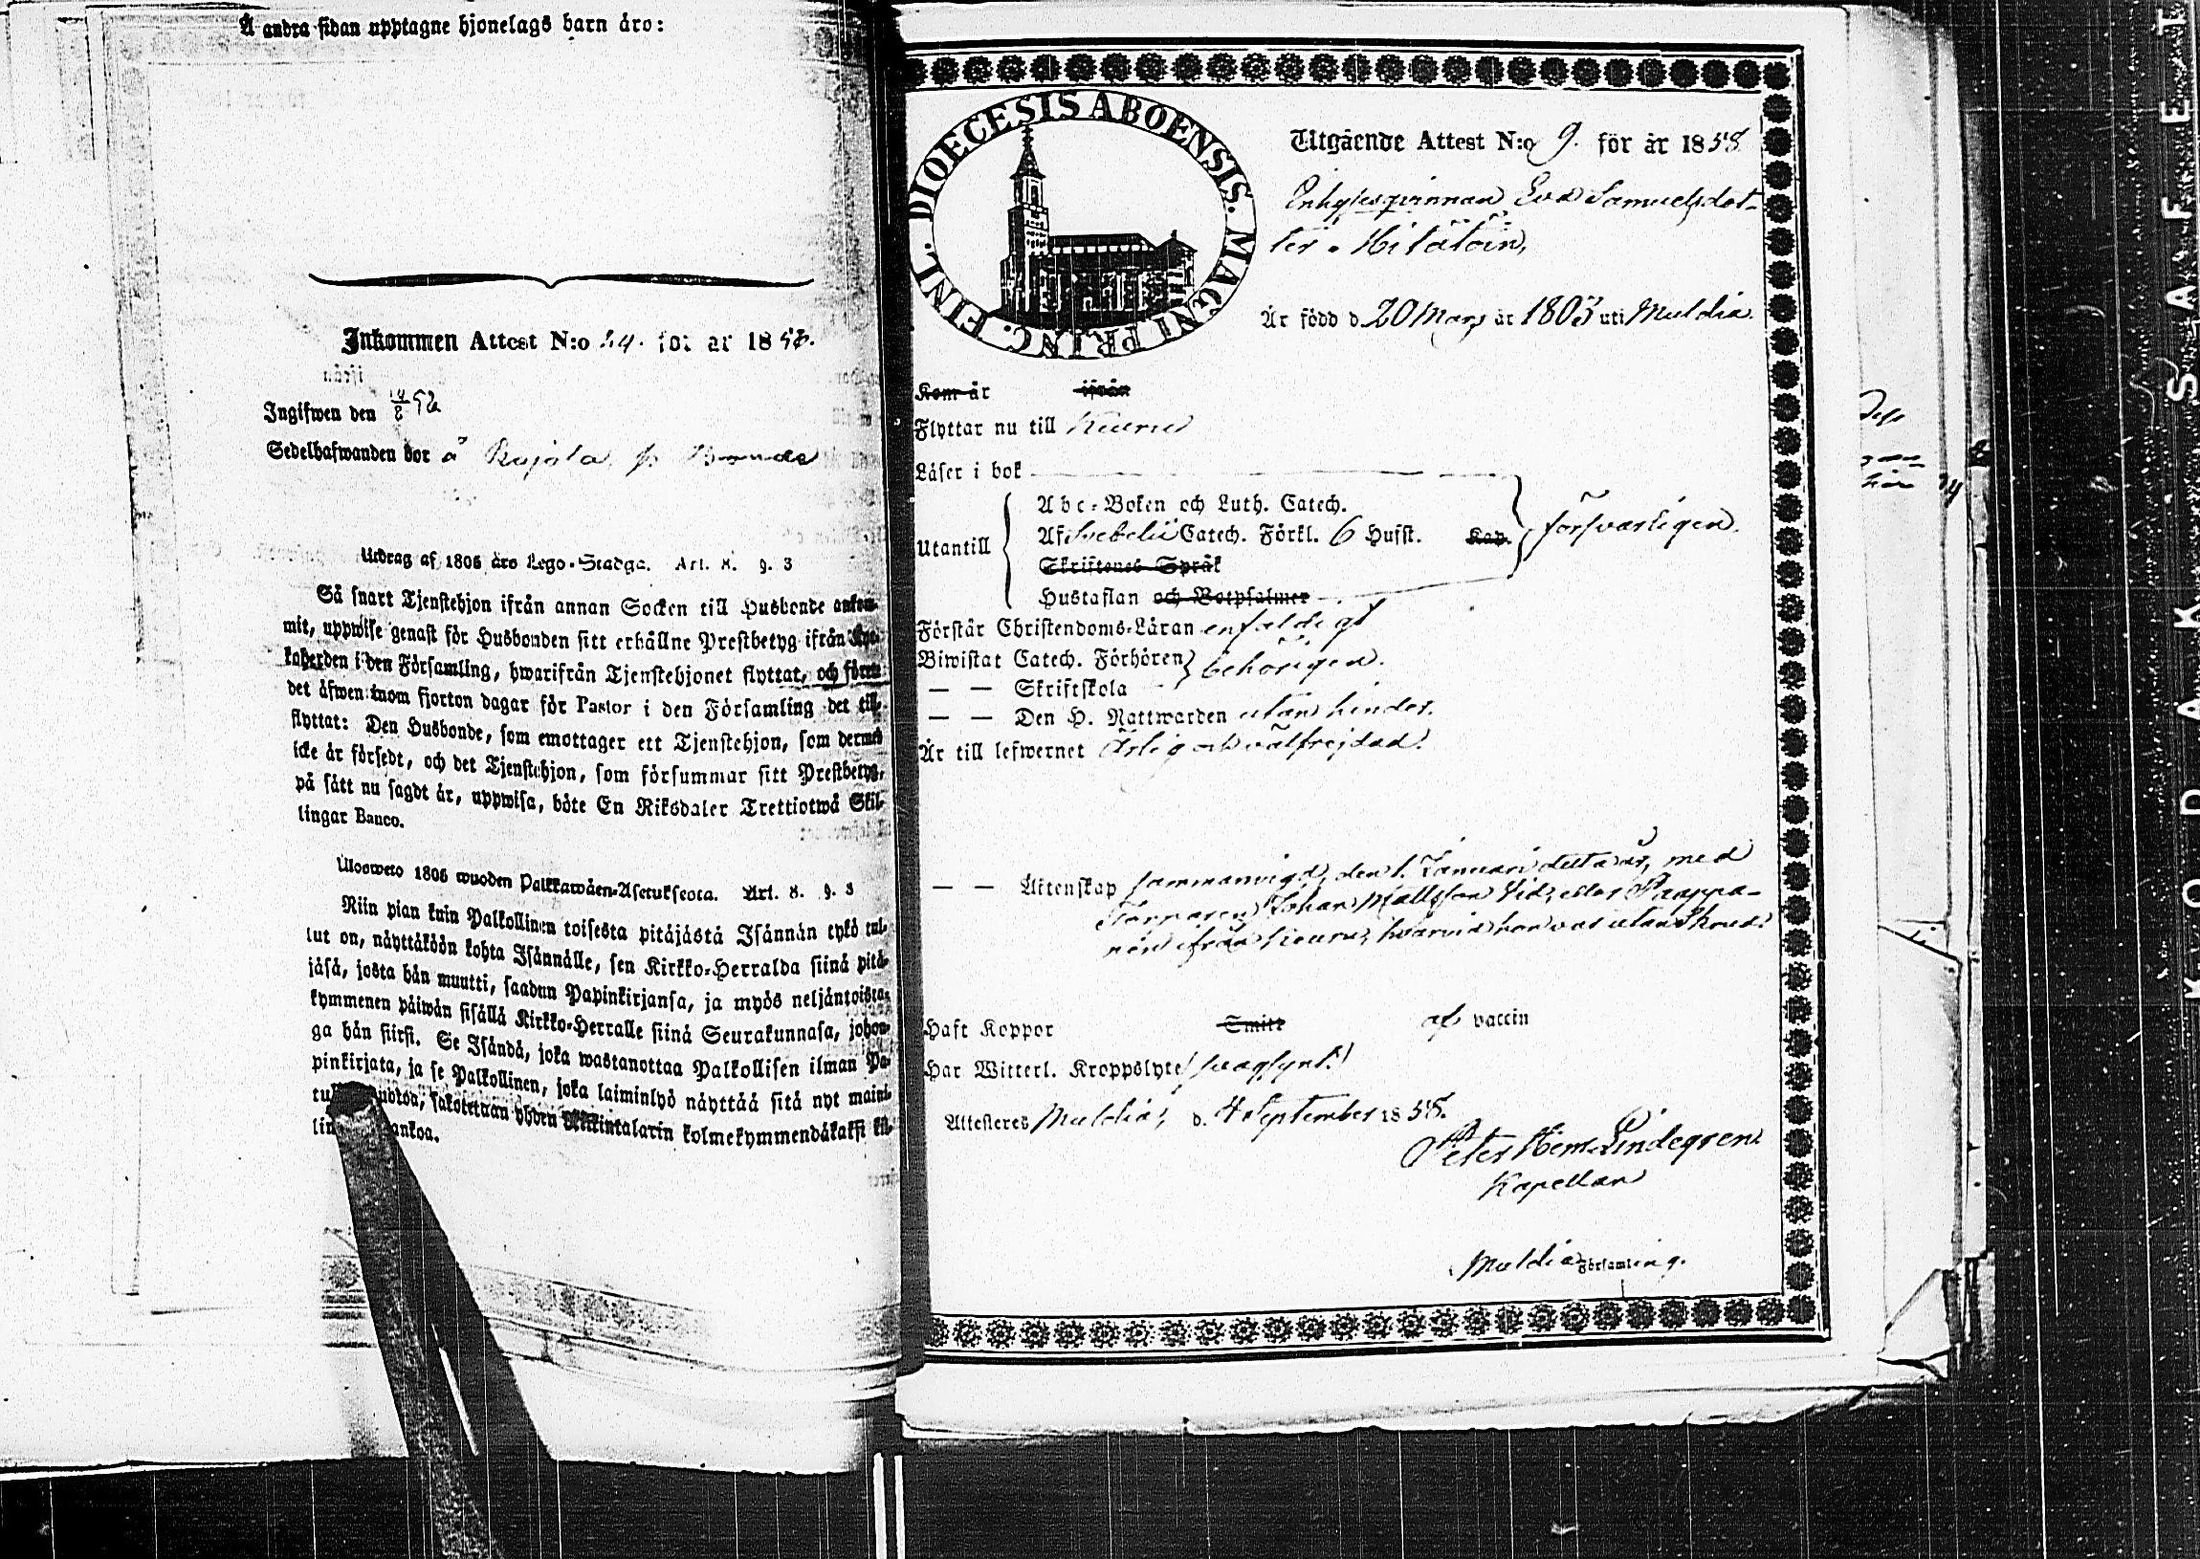 Å andra sidan upptagne hjonelags barn äro:
Inkommen Attest N:o 54. för år 1858.
Ingifwen den 14/8 58
Sedelhafwanden bor å Rajala
Utdrag af 1805 års Lego-Stadga. Art. 8. §. 3
Så snart Tjenstehjon ifrån annan Socken till Husbonde ankom-
mit, uppwise genast för Husbonden sitt erhållne Prestbetyg ifrån Kyr-
koherden i den Församling, hwarifrån Tjenstehjonet flyttat, och förete
det äfwen inom fjorton dagar för Pastor i den Församling det till-
flyttat: Den Husbonde, som emottager ett Tjenstehjon, som dermed
icke är försedt, och det Tjenstehjon, som försummar sitt Prestbetyg,
på sätt nu sagdt är, uppwisa, böte En Riksdaler Trettiotwå Skil-
lingar Banco.
Ulosweto 1805 wuoden Palkkawäen-Asetuksesta. Art. 8. §. 3
Niin pian kuin Palkollinen toisesta pitäjästä Isännän tykö tul-
lut on, näyttäköön kohta Isännälle, sen Kirkko-Herralda siinä pitä-
jäsä, josta hän muutti, saadun Papinkirjansa, ja myös neljäntoista-
kymmenen päiwän sisällä Kirkko-Herralle siinä Seurakunnasa, johon-
ga hän siirsi. Se Isändä, joka wastanottaa Palkollisen ilman Pa-
pinkirjata, ja se Palkollinen, joka laiminlyö näyttää sitä nyt maini-
tulla muotoa, sakotetaan yhden Riikintalarin kolmekymmendäkaksi kil-
lin ankoa.
DIOECESIS ABOENSIS. MAGNI PRINC. FINL.
Utgående Attest N:o 9. för år 1858
Enkyesqvinnan Eva Samuelsdot-
ter Hitätöin,
Är född d. 20 Mars år 1803 uti Muldia.
Kom år ifrån
Flyttar nu till Keuru
Läser i bok
Abc-Boken och Luth. Catech.
Utantill Af Svebelii Catech. Förkl. 6 Hufst. Kap. försvarligen.
Skriftenes Språk
Hustaflan och Botpsalmer
Förstår Christendoms-Läran enfaldigt
Biwistat Catech. Förhören behörigen.
— — Skriftskola
— — Den H. Nattwarden utan hinder.
Är till lefwernet Ärlig och välfrejdad.
— — Äktenskap sammanvigd, den 1. Januari detta år, med
Torparen Johan Mattsson Vid, eller Paappa-
nen ifrån Keuru, hvarvid hon var utan
Haft Koppor Smitt af vaccin
Har Witterl. Kroppslyte (svagsynt.)
Attesteras Muldia, d. 4 September 1858.
Peter Hem. Lindegren
Kapellan
Muldia Församling.
KODAK SAFET